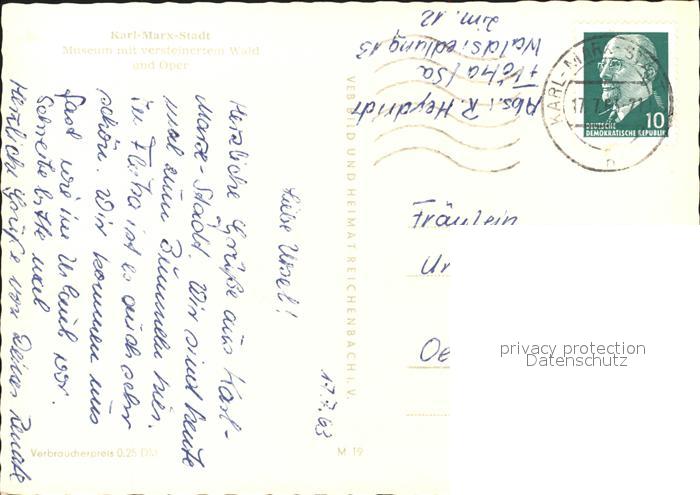 Karl-Marx-Stadt
Museum mit versteinertem Wald
und Oper
17.7.63
Liebe Ursel!
Herzliche Grüße aus Karl-
Marx-Stadt. Wir sind heute
mal zum Bummeln hier.
In Flöha ist es auch sehr
schön. Wir kommen uns
fast wie im Urlaub vor.
Schreibe bitte mal
Herzliche Grüße von Deiner Renate
Verbraucherpreis 0,25 DM
M 19
VEB BILD UND HEIMAT REICHENBACH I. V.
Abs.: R. Heydrich
Flöha /Sa
Waldsiedlung 13
Zim. 12
KARL-MARX-STADT
17.7.63
n
10
DEUTSCHE
DEMOKRATISCHE REPUBLIK
Fräulein
Ur
Oe
privacy protection
Datenschutz